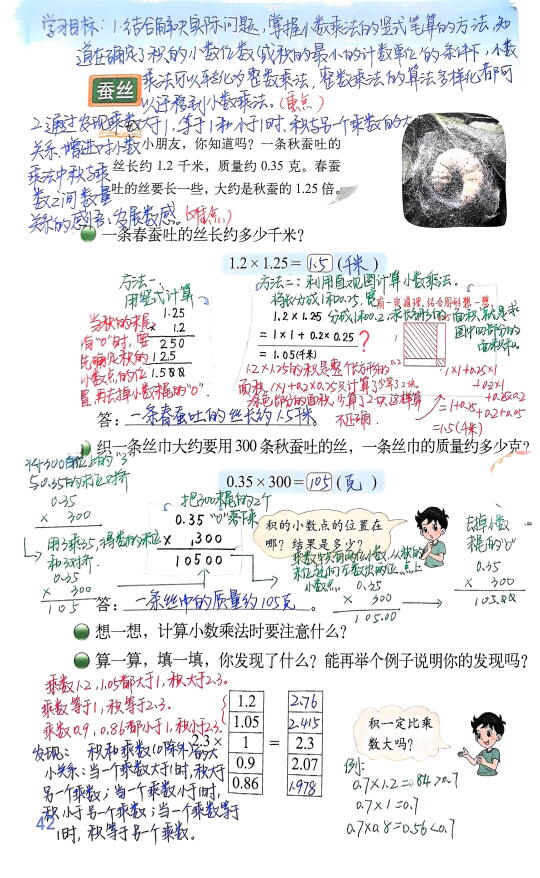 学习目标：1.结合解决实际问题，掌握小数乘法的竖式笔算的方法，知
道在确定了积的小数位数(或积的最小的计数单位)的条件下，小数
乘法可以转化为整数乘法，整数乘法的算法多样化都可
以迁移到小数乘法。(重点)
蚕丝
2.通过发现乘数大于1、等于1和小于1时，积与另一个乘数的大
关系，增进对小数
乘法中积与乘
数之间数量
关系的感悟，发展数感。(难点)
小朋友，你知道吗？一条秋蚕吐的
丝长约 1.2 千米，质量约 0.35 克。春蚕
吐的丝要长一些，大约是秋蚕的 1.25 倍。
一条春蚕吐的丝长约多少千米？
1.2 × 1.25 = 1.5 (千米)
方法一：
用竖式计算
1.25
× 1.2
250
125
1.500
当积的末尾
有“0”时，要
先确定积的
小数点的位
置，再去掉小数末尾的“0”。
方法二：利用直观图计算小数乘法。
将长分成1和0.25，宽
分成1和0.2，求长方形的面积，就是求
图中四部分的
面积和。
有一定道理，结合图形想一想。
1.2 × 1.25
= 1×1 + 0.2×0.25
= 1.05(千米)
?
1
0.2
1.2×1.25的积是整个长方形的
面积，1×1+0.2×0.25只计算了
涂色部分的面积，少算了2块，这样算
不正确。
少算了2块
1×1+0.25×1
+0.2×1
+0.25×0.2
=1+0.25
+0.2+0.05
=1.5(千米)
答：一条春蚕吐的丝长约1.5千米。
织一条丝巾大约要用 300 条秋蚕吐的丝，一条丝巾的质量约多少克？
0.35 × 300 = 105 (克)
将300百位上的“3”
与0.35的末位对齐
0.35
× 300
用3乘35，得数的末位
和3对齐。
0.35
× 300
105
把300末尾的2个
“0”落下来
0.35
× 300
10500
积的小数点的位置在
哪？结果是多少？
乘数中共有两位小数，从积的
末位起向左数出两位，点上
小数点。
0.35
× 300
105.00
去掉小数
末尾的“0”
0.35
× 300
105.00
答：一条丝巾的质量约105克。
想一想，计算小数乘法时要注意什么？
算一算，填一填，你发现了什么？能再举个例子说明你的发现吗？
乘数1.2，1.05都大于1，积大于2.3。
乘数等于1，积等于2.3。
乘数0.9，0.86都小于1，积小于2.3。
2.3 ×
1.2
1.05
1
0.9
0.86
=
2.76
2.415
2.3
2.07
1.978
积一定比乘
数大吗？
例：
0.7×1.2=0.84>0.7
0.7×1=0.7
0.7×0.8=0.56<0.7
发现：积和乘数(0除外)的大
小关系：当一个乘数大于1时，积大于
另一个乘数；当一个乘数小于1时，
积小于另一个乘数；当一个乘数等于
1时，积等于另一个乘数。
42